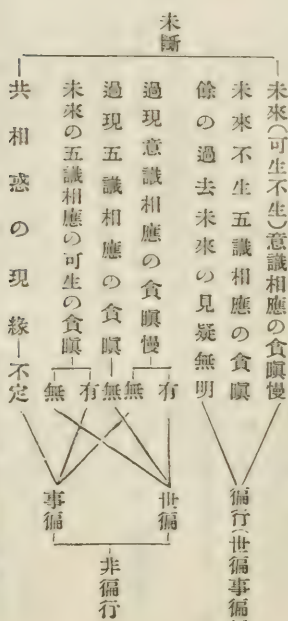 未斷
未來(可生不生)意識相應の貪瞋慢
未來不生五識相應の貪瞋
餘の過去未來の見疑無明
過現意識相應の貪瞋慢
過現五識相應の貪瞋
未來の五識相應の可生の貪瞋
共相惑の現緣
不定
有
無
無
有
無
世徧
事徧
徧行(世徧事徧
非徧行